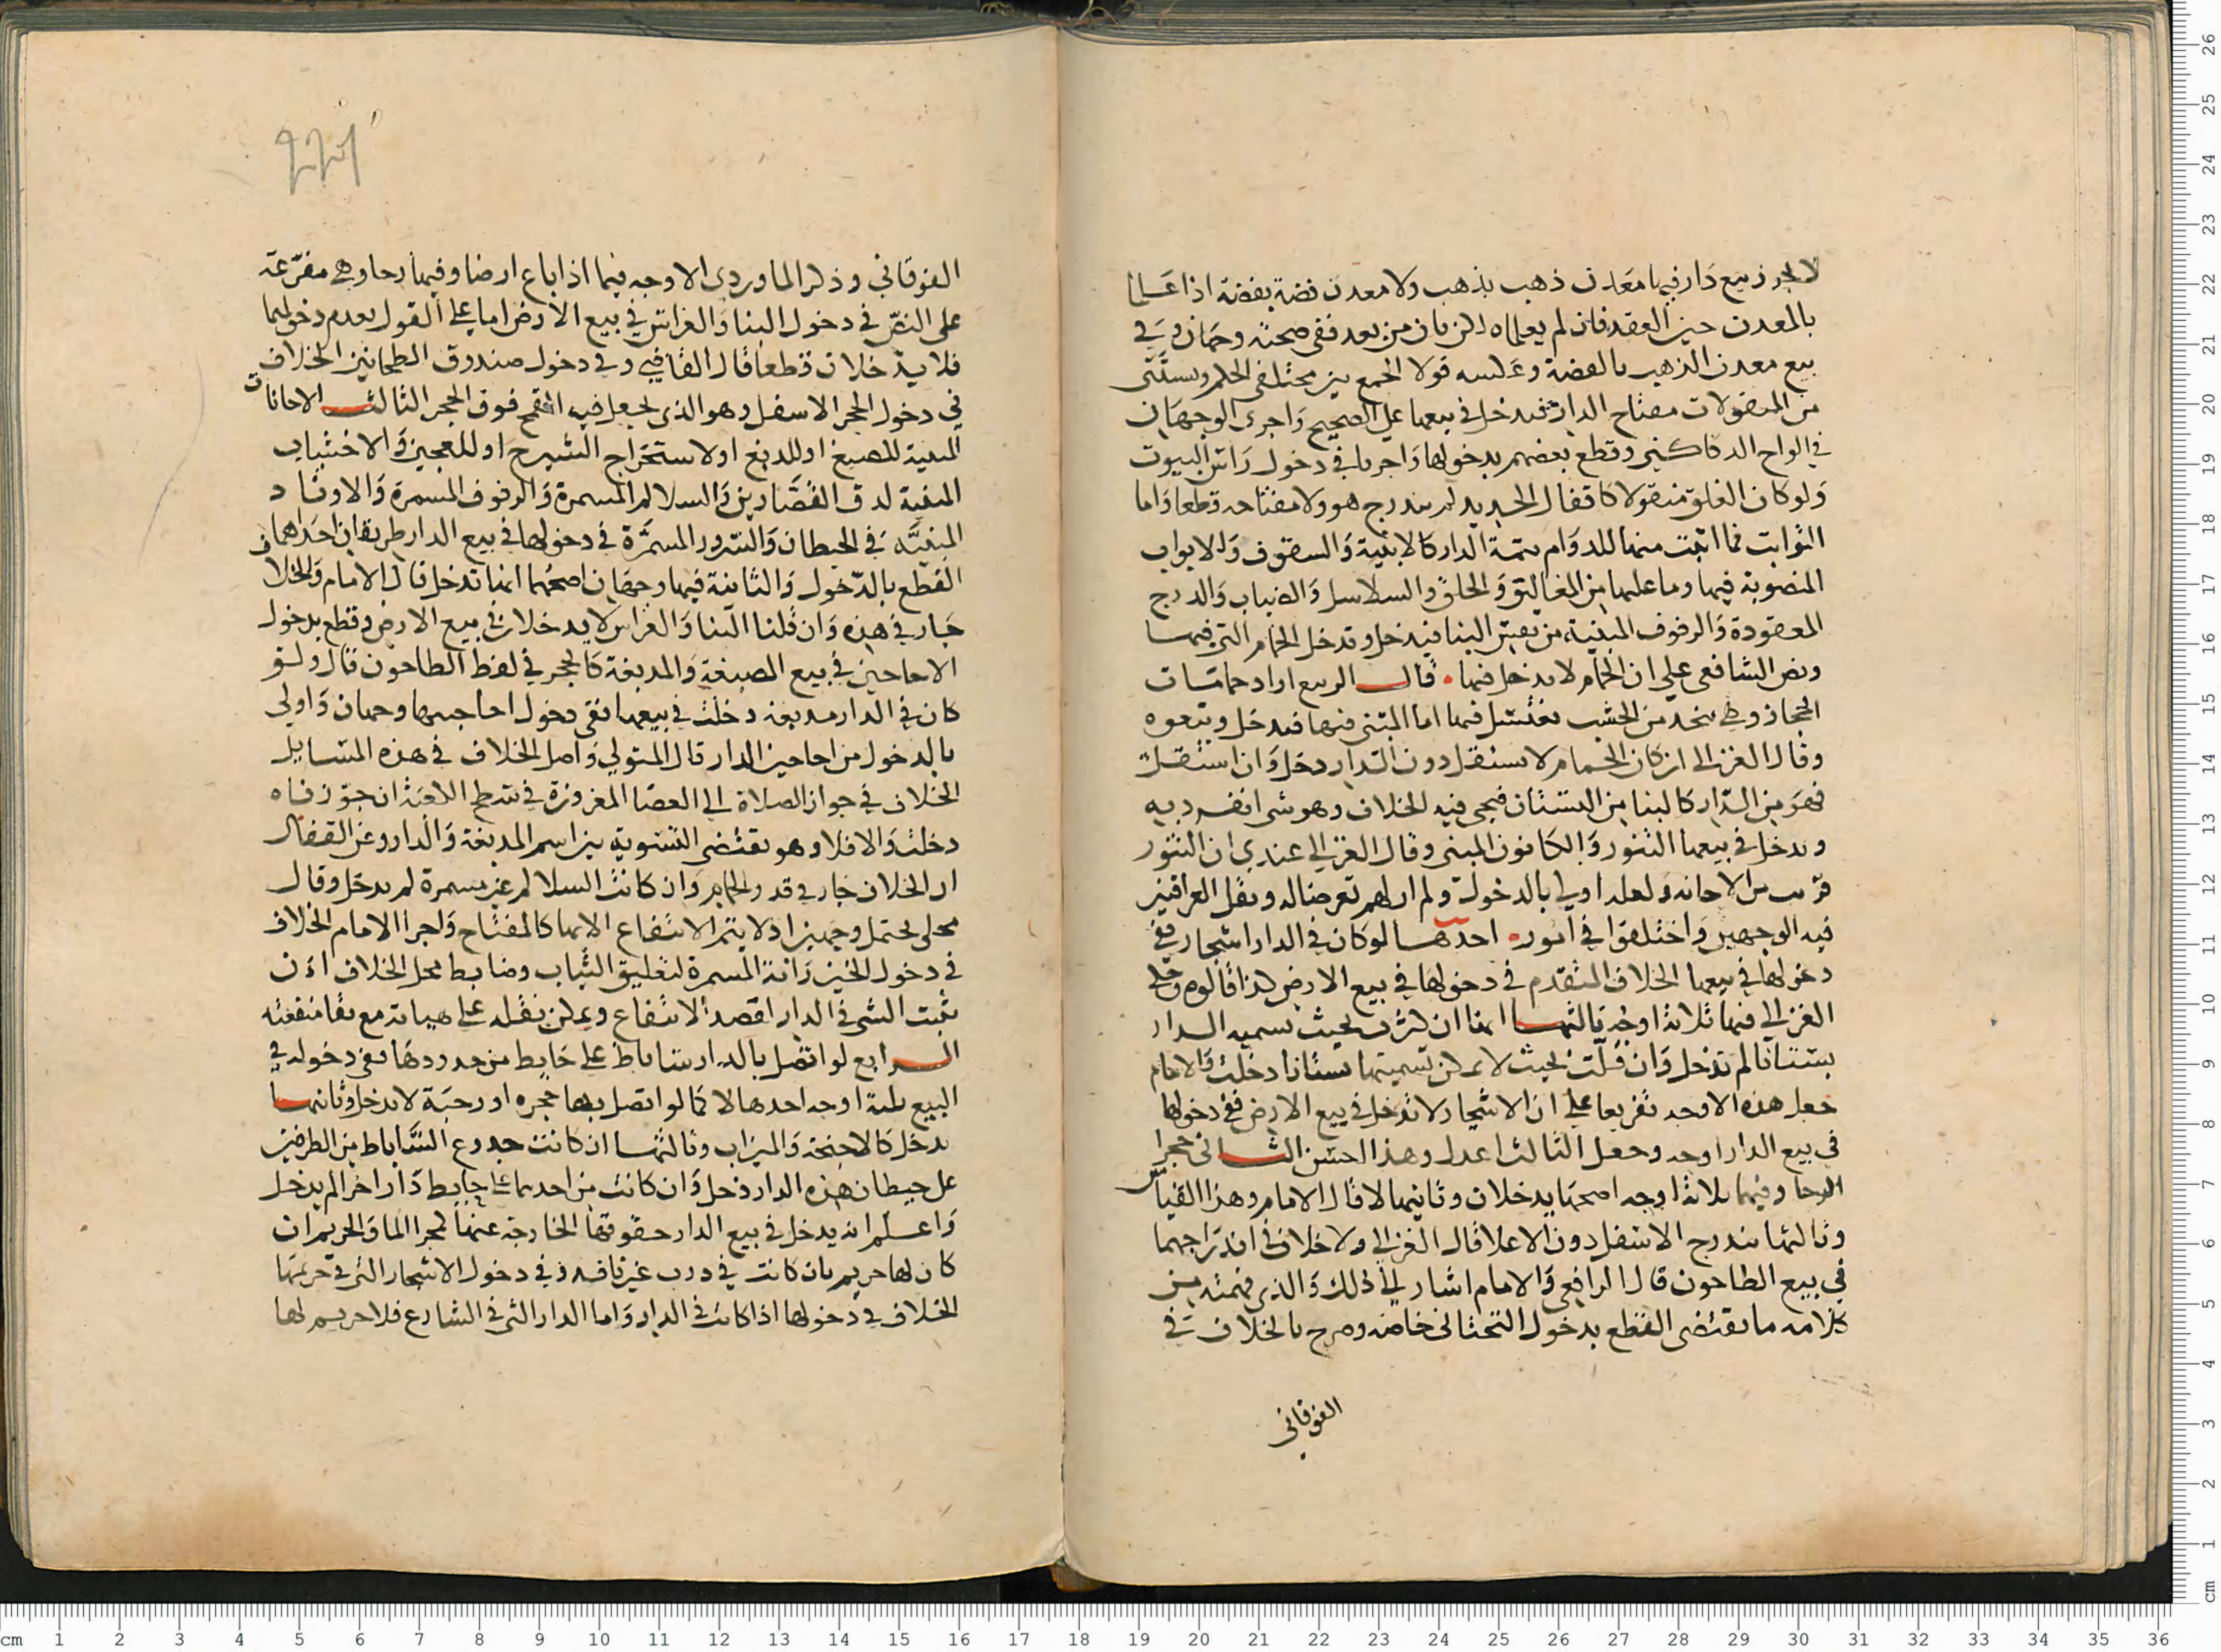 لا يجوز بيع دار فيها معدن ذهب بذهب ولا معدن فضة بفضة اذا علما
بالمعدن حين العقد فان لم يعلماه لكن بان من بعد ففي صحته وجهان وفي
بيع معدن الذهب بالفضة وعكسه قولا الجمع بين مختلفي الحكم ويستثنى
من المنقولات مفتاح الدار فيدخل في بيعها على الصحيح واجرى الوجهان
في الواح الدكاكين وقطع بعضهم بدخولها واجريا في دخول راس البيوت
ولو كان الغلق منقولا كاقفال الحديد لم يندرج هو ولا مفتاحه قطعا واما
الثوابت فما اثبت منها للدوام تتمة الدار كالابنية والسقوف والابواب
المنصوبة فيها وما عليها من المغاليق والحلق والسلاسل والضباب والدرج
المعقودة والرفوف المبنية من نفس البنا فيدخل وتدخل الحمام التي فيها
ونص الشافعي على ان الحمام لا يدخل فيها قال الربيع اراد حمامات
الحجاز وهي تتخذ من الخشب تغتسل فيها اما المبنى منها فيدخل وتبعوه
وقال الغزالي ان كان الحمام لا يستقل دون الدار دخل وان استقل
فهو من الدار كالبنا من البستان فيجي فيه الخلاف وهو شي انفرد به
ويدخل في بيعها التنور والكانون المبنى وقال الغزالي عندي ان التنور
قريب من الاجانة ولعله اولى بالدخول ولم ار لهم تعرضا له ونقل العراقيين
فيه الوجهين واختلفوا في امور احدها لو كان في الدار اشجار ففي
دخولها في بيعها الخلاف المتقدم في دخولها في بيع الارض كذا قالوه وحكى
الغزالي فيها ثلاثة اوجه ثالثها انها ان كثرت بحيث تسميه الدار
بستانا لم تدخل وان قلت بحيث لا يمكن تسميتها بستانا دخلت والامام
جعل هذه الاوجه تفريعا على ان الاشجار لا تدخل في بيع الارض ففي دخولها
في بيع الدار اوجه وجعل الثالث اعدل وهذا احسن الثاني حجرا
الرحا وفيهما ثلاثة اوجه اصحها يدخلان وثانيها لا قال الامام وهذا القياس
وثالثها يندرج الاسفل دون الاعلا قال الغزالي ولا خلاف في اندراجهما
في بيع الطاحون قال الرافعي والامام اشار الى ذلك والذي فهمته من
كلامه ما يقتضي القطع بدخول التحتاني خاصه وصرح بالخلاف في
الفوقاني
الفوقاني وذكر الماوردي الاوجه فيما اذا باع ارضا وفيها رحا وهي مفرعة
على النص في دخول البنا والغراس في بيع الارض اما على القول بعدم دخولهما
فلا يدخلان قطعا قال القاضي وفي دخول صندوق الطحانين الخلاف
في دخول الحجر الاسفل وهو الذي يجعل فيه القمح فوق الحجر الثالث الاجانات
المبنية للصبغ او للدبغ او لاستخراج الشيرج او للعجين والاخشاب
المبنية لدق القصارين والسلالم المسمرة والرفوف المسمرة والاوتاد
المبنيه في الحيطان والسرر المسمرة في دخولها في بيع الدار طريقان احداهما
القطع بالدخول والثانية فيها وجهان اصحهما انها تدخل قال الامام والخلاف
جار في هذه وان قلنا البنا والغراس لا يدخلان في بيع الارض وقطع بدخول
الاجاجين في بيع المصبغة والمدبغة كالحجر في لفظ الطاحون قال ولو
كان في الدار مدبغة دخلت في بيعها ففي دخول اجاجينها وجهان واولى
بالدخول من اجاجين الدار قال المتولي واصل الخلاف في هذه المسايل
الخلاف في جواز الصلاة الى العصا المغروزة في سطح الكعبة ان جوزناه
دخلت والا فلا وهو يقتضي التسوية بين اسم المدبغة والدار وعن القفال
ان الخلاف جار في قدور الحمام وان كانت السلالم غير مسمرة لم يدخل وقال
مجلى يحتمل وجهين اذ لا يتم الانتفاع الا بها كالمفتاح واجرا الامام الخلاف
في دخول الخيزرانة المسمرة لتعليق الثياب وضابط محل الخلاف ان
يثبت الشي في الدار لقصد الانتفاع ويمكن نقله على هيأته مع بقا منفعته
الرابع لو اتصل بالدار ساباط على حايط من حدودها ففي دخوله في
البيع ثلثة اوجه احدها لا كما لو اتصل بها حجره او رحبة لا يدخل وثانيها
يدخل كالاجنحة والميزاب وثالثها ان كانت جدوع الساباط من الطرفين
على حيطان هذه الدار دخل وان كانت من احدهما على حايط دار اخر لم يدخل
واعلم انه يدخل في بيع الدار حقوقها الخارجة عنها كمجرا الما والحريم ان
كان لها حريم بان كانت في درب غير نافذ وفي دخول الاشجار التي في حريمها
الخلاف في دخولها اذا كانت في الدار واما الدار التي في الشارع فلا حريم لها